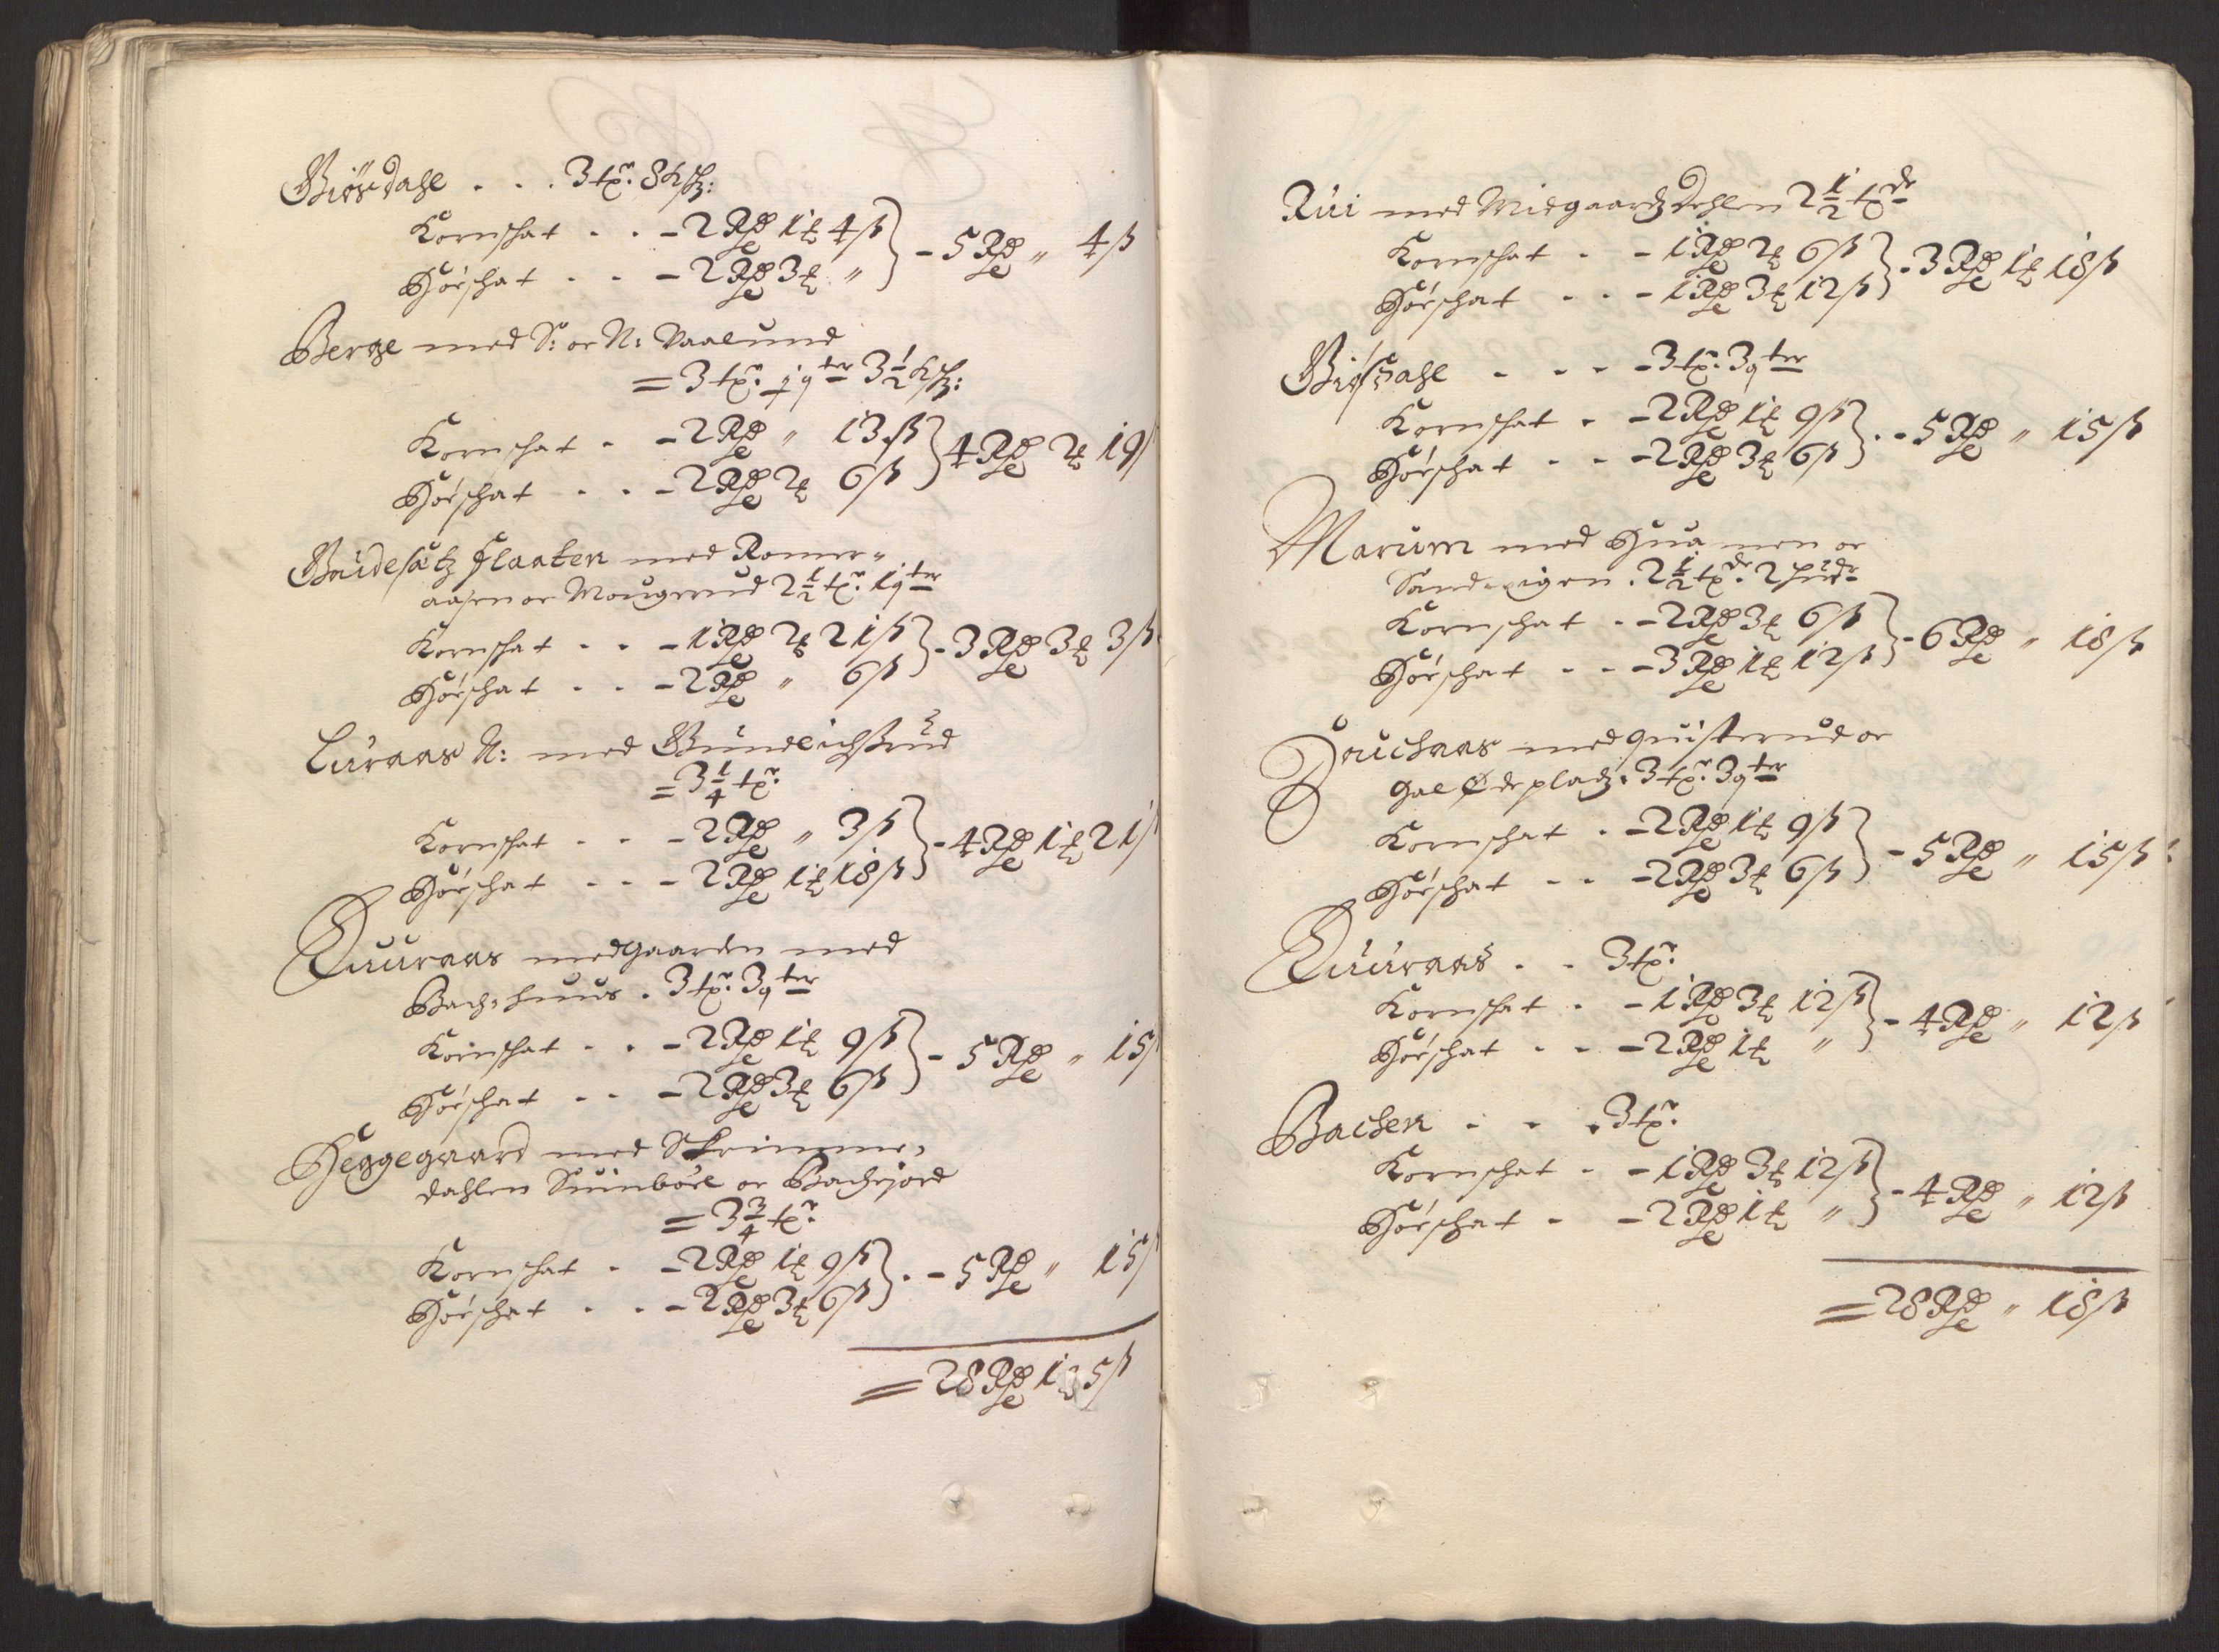 Giösdahl . . . 3 tr. 8 schl:
Kornschat . . - 2 Rd 1 ort 4 ß
Hörschat . . - 2 Rd 3 ort „ } - 5 Rd „ 4 ß
Berge med S: oc N: Vaalund
= 3 tr. 1 qter 3½ schl:
Kornschat . - 2 Rd „ 13 ß
Hörschat . . - 2 Rd 2 ort 6 ß } 4 Rd 2 ort 19
flaaten med Romer-
aasen oc Mougerud 2½ tr. 1 qter
Kornschat . . - 1 Rd 2 ort 21 ß
Hörschat . . - 2 Rd „ 6 ß } - 3 Rd 3 ort 3 ß
Luraas N: med
= 3¼ tr.
Kornschat . . - 2 Rd „ 3 ß
Hörschat . . - 2 Rd 1 ort 18 ß } - 4 Rd 1 ort 21
Duuraas medgaarden med
Bachehuus . 3 tr. 3 qter
Kornschat . . - 2 Rd 1 ort 9 ß
Hörschat . . - 2 Rd 3 ort 6 ß } - 5 Rd „ 15
Heggegaard med Skrimme-
dahlen Suinböle oc Bachejord
= 3¾ tr.
Kornschat . - 2 Rd 1 ort 9 ß
Hörschat . . - 2 Rd 3 ort 6 ß } . - 5 Rd „ 15
= 28 Rd 1 ort 5 ß
Rui med Midgaardz Dehlen 2½ tr
Kornschat . - 1 Rd 2 ort 6 ß
Hörschat . . - 1 Rd 3 ort 12 ß } - 3 Rd 1 ort 18 ß
Giösdahl . . . - 3 tr. 3 qter
Kornschat . - 2 Rd 1 ort 9 ß
Hörschat . . - 2 Rd 3 ort 6 ß } . - 5 Rd „ 15 ß
Marum med Huamen oc
2½ tr. 2 hud
Kornschat . - 2 Rd 3 ort 6 ß
Hörschat . . - 3 Rd 1 ort 12 ß } - 6 Rd „ 18 ß
med quisterud oc
ødeplads . 3 tr. 3 qter
Kornschat . - 2 Rd 1 ort 9 ß
Hörschat . . - 2 Rd 3 ort 6 ß } - 5 Rd „ 15 ß
Duuraas . . 3 tr.
Kornschat . - 1 Rd 3 ort 12 ß
Hörschat . . - 2 Rd 1 ort „ } - 4 Rd „ 12 ß
Bachen . . . 3 tr.
Kornschat . - 1 Rd 3 ort 12 ß
Hörschat . - 2 Rd 1 ort „ } - 4 Rd „ 12 ß
= 28 Rd „ 18 ß